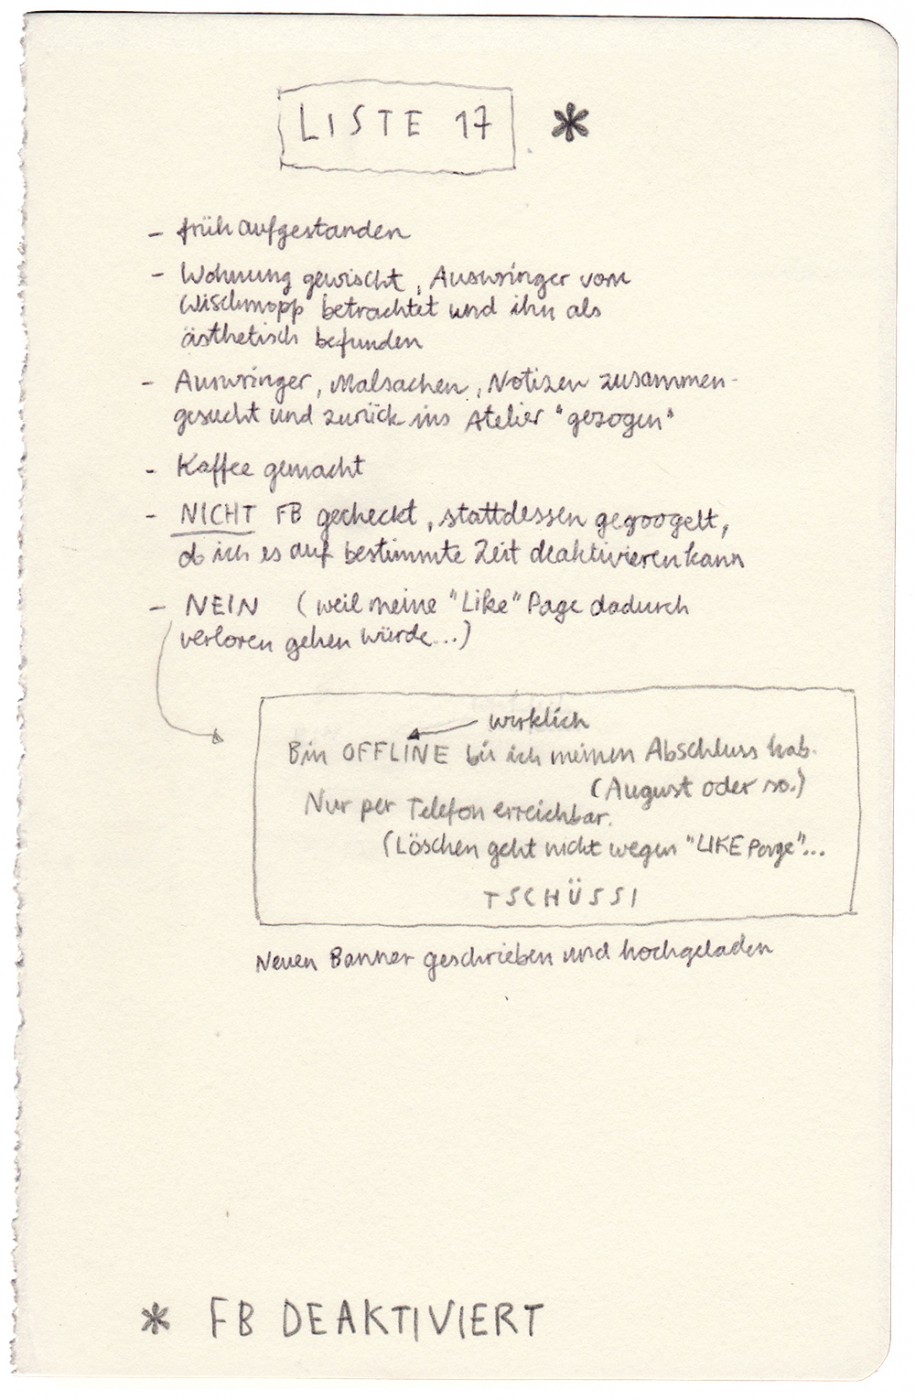 LISTE 17 *
- früh aufgestanden
- Wohnung gewischt, Auswringer vom
Wischmopp betrachtet und ihn als
ästhetisch befunden
- Auswringer, Malsachen, Notizen zusammen-
gesucht und zurück ins Atelier "gezogen"
- Kaffee gemacht
- NICHT FB gecheckt, stattdessen gegoogelt,
ob ich es auf bestimmte Zeit deaktivieren kann
- NEIN (weil meine "Like" Page dadurch
verloren gehen würde...)
wirklich
Bin OFFLINE bis ich meinen Abschluss hab.
(August oder so.)
Nur per Telefon erreichbar.
(Löschen geht nicht wegen "LIKE Page"...
TSCHÜSSI
Neuen Banner geschrieben und hochgeladen
* FB DEAKTIVIERT